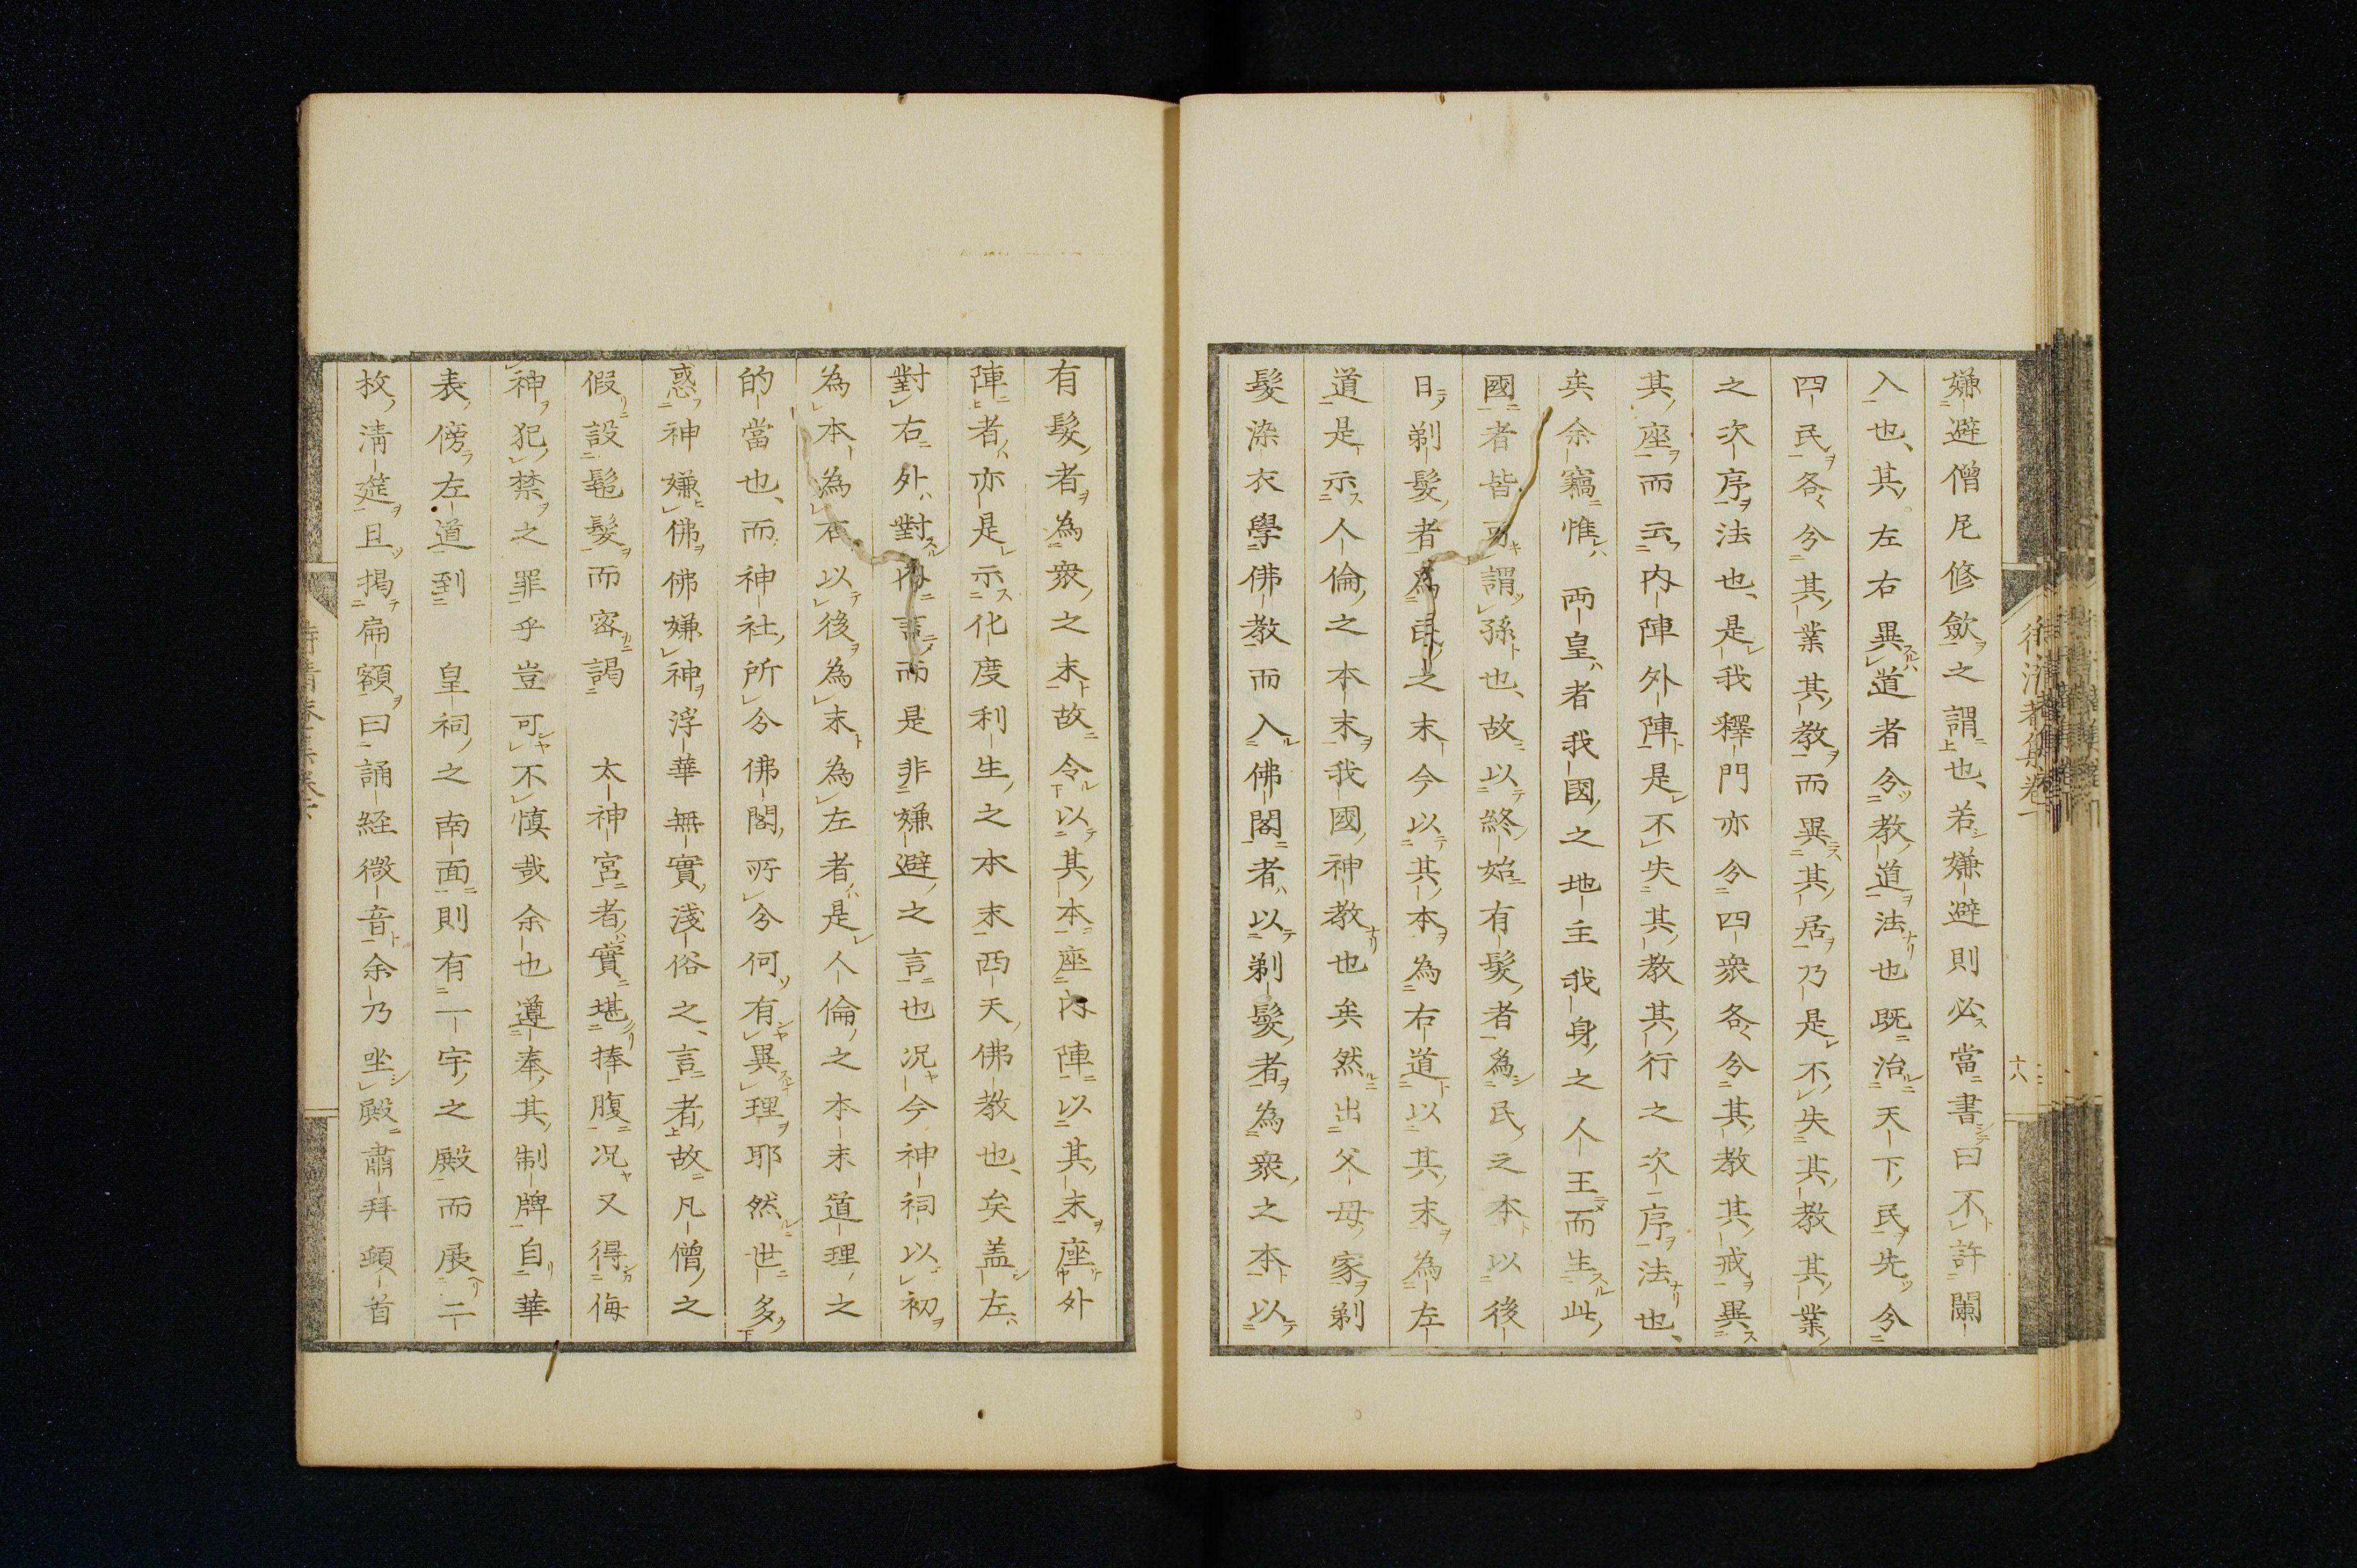 嫌避僧尼修歛之謂也若嫌避則必當書曰不許闌
入也其左右異道者分教道法也既治天下民先分
四民各分其業其教而異其居乃是不失其教其業
之次序法也是我釋門亦分四衆各分其教其戒異
其座而云内陣外陣是不失其教其行之次序法也
矣余竊惟　両皇者我國之地主我身之人王而生此
國者皆可謂孫也故以終始有髮者為民之本以後
日剃髮者為民之末今以其本為右道以其末為左
道是示人倫之本末我國神教也矣然出父母家剃
髮染衣學佛教而入佛閣者以剃髮者為衆之本以
有髮者為衆之末故令以其本座内陣以其末座外
陣者亦是示化度利生之本末西天佛教也矣盖左
對右外對内言而是非嫌避之言也况今神祠以初
為本為右以後為末為左者是人倫之本末道理之
的當也而神社所分佛閣所分何有異理耶然世多
惑神嫌佛佛嫌神浮華無實淺俗之言者故凡僧之
假設髢髮而密謁　太神宮者實堪捧腹况又得侮
神犯禁之罪乎豈可不慎哉余也遵奉其制牌自華
表傍左道到　皇祠之南面則有一宇之殿而展二
枚清筵且掲扁額曰誦経微音余乃坐殿肅拜頓首
六八